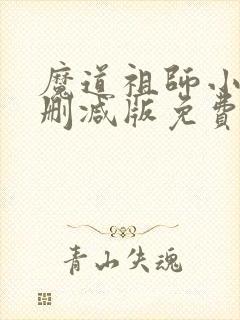 魔道祖師小
刪減版免費
青山失魂